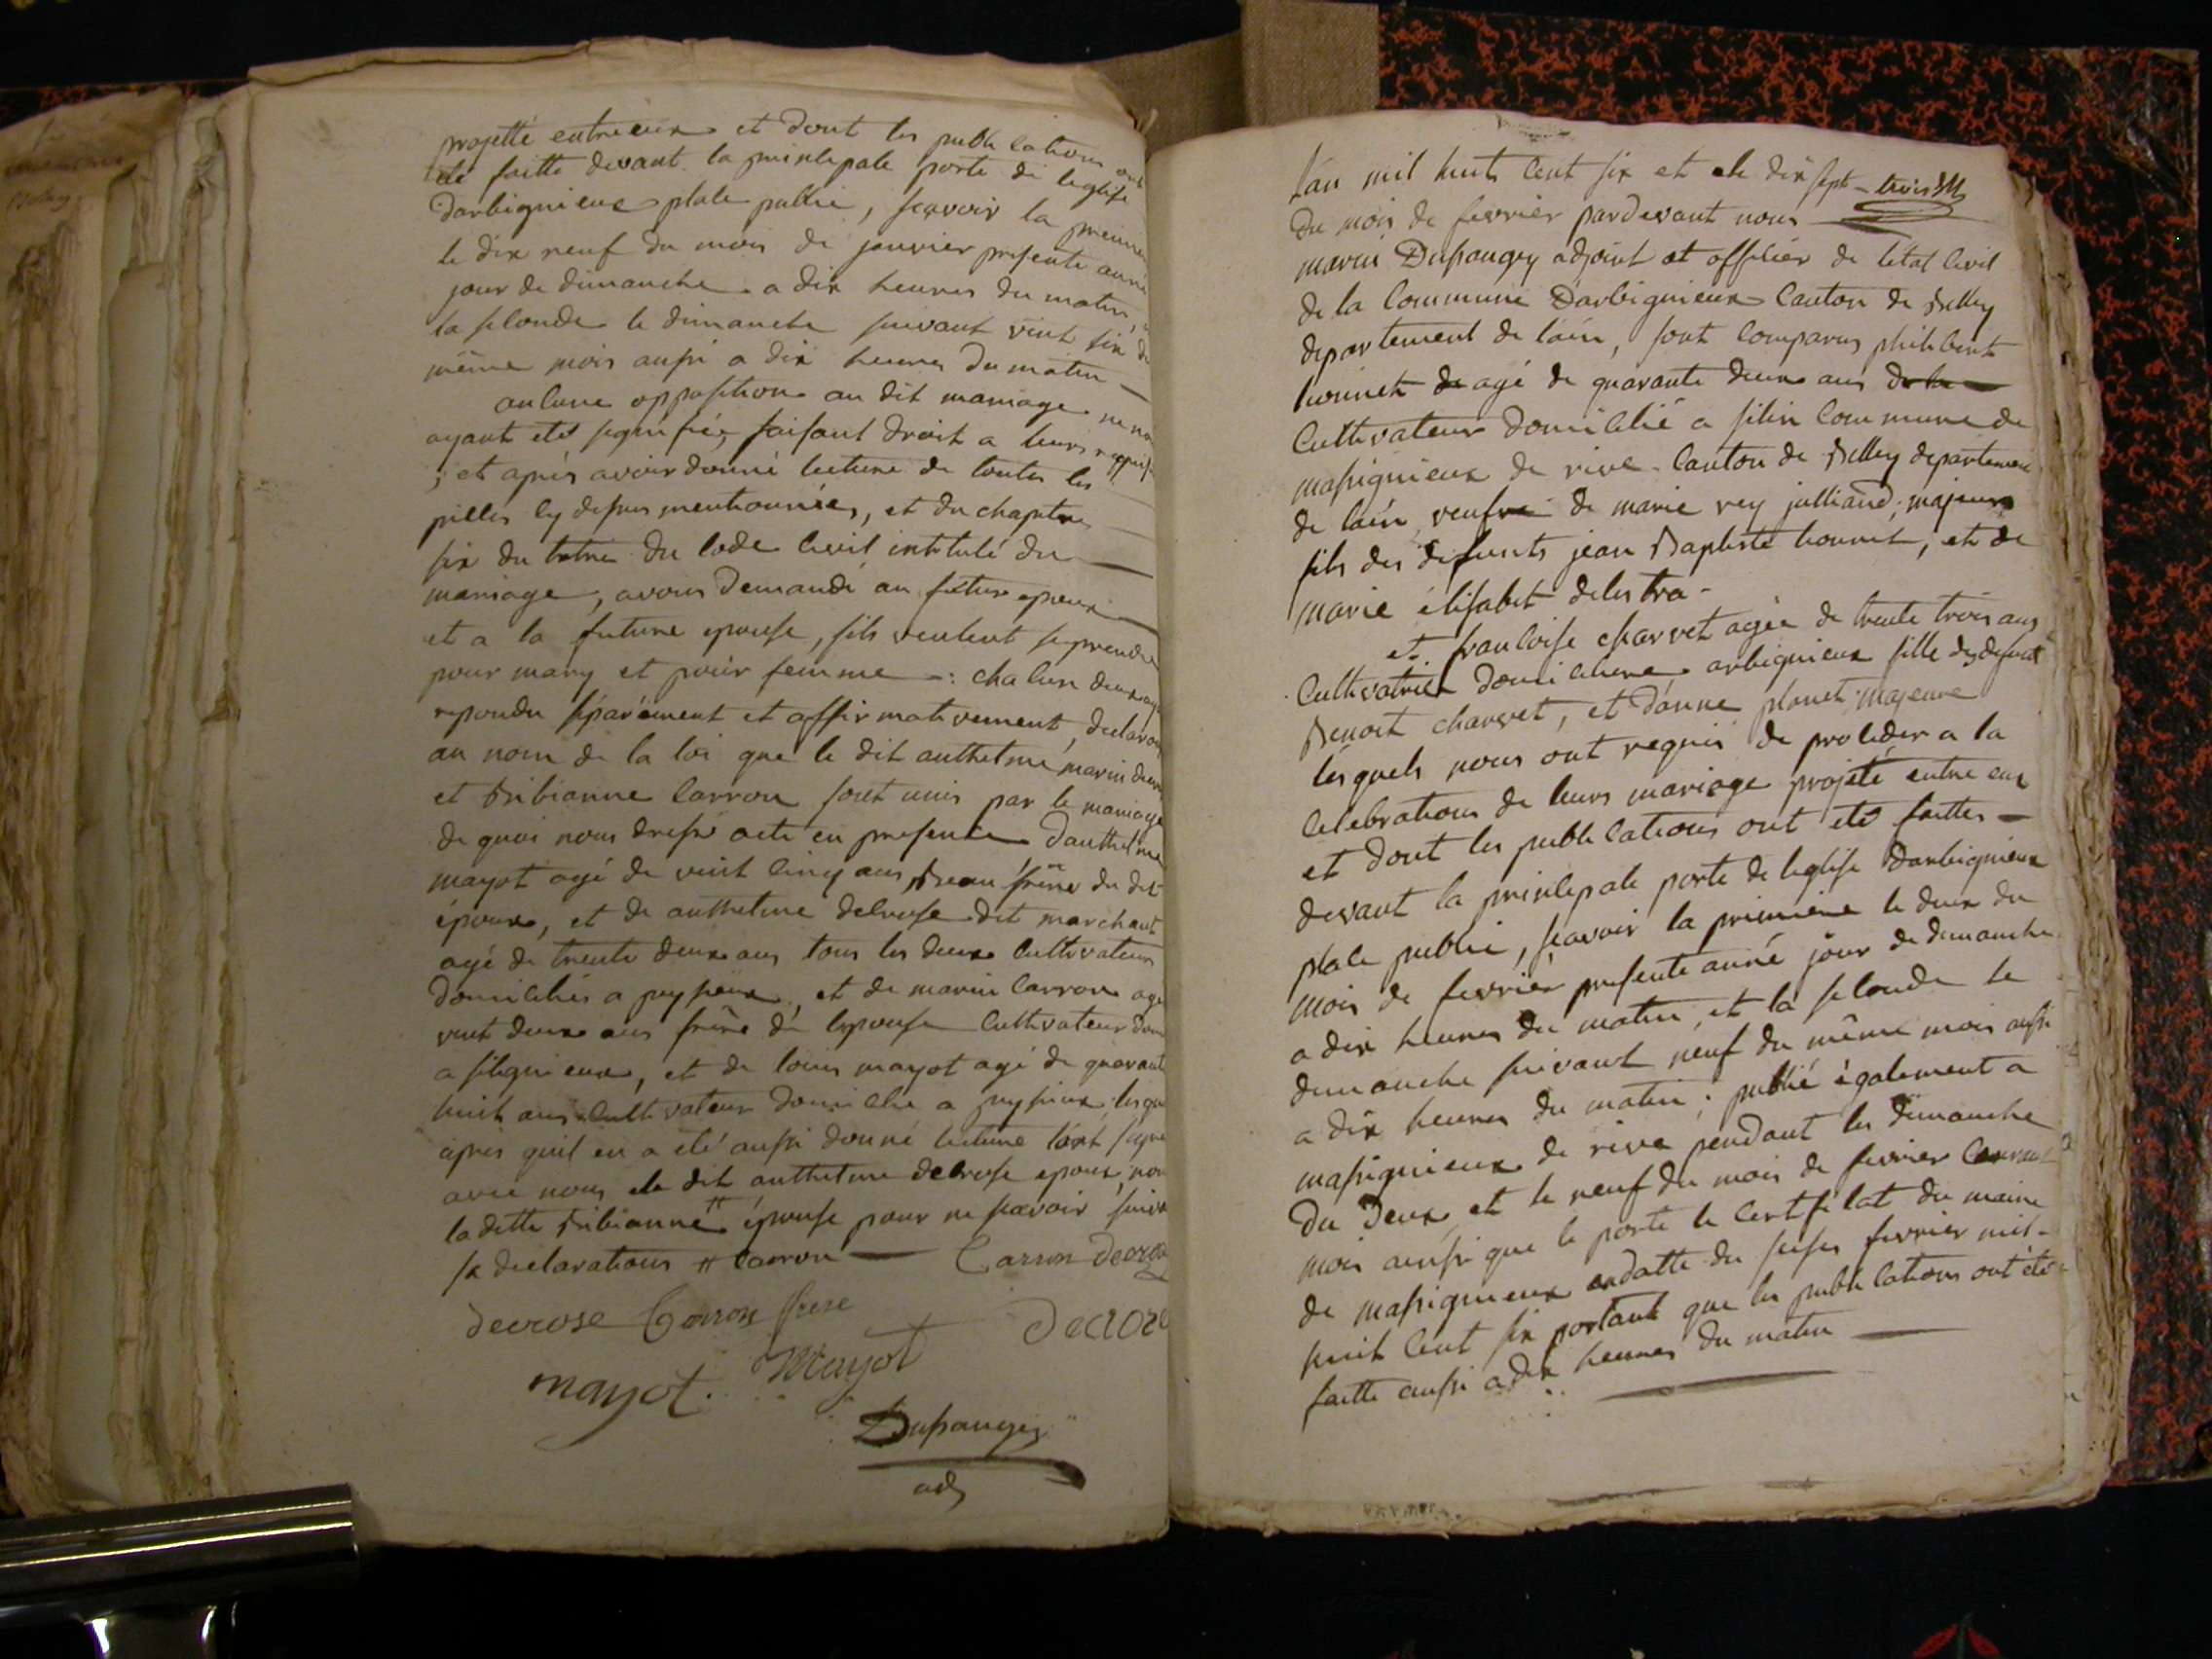 projetté entrieux et dont les publications ont
été faitte devant la principale porte de leglise
Darbignieux place public, scavoir la premiere
le dix neuf du mois de janvier presente anné
jour de dimanche a dix heures du matin,
la seconde le dimanche suivant vint six du
même mois aussi a dix heures du matin
aucune opposition au dit mariage ne nous
ayant eté signifiée, faisant droit a leurs requisi
; et après avoir donné lecture de toutes les
pieces cy dessus mentionnées, et du chapitre
six du titre du code civil intitulé du
mariage, avons demandé au futur epoux
et a la future epouse, sils veulent se prendre
pour mary et pour femme : chacun deux ayt
repondu séparément et affirmativement, declaron
au nom de la loi que le dit anthelme marin decro
et Bibianne Carron sont unis par le mariage
de quoi nous dressé acte en presence Danthelme
mayot agé de vint cinq ans, Beau frère du dit
époux, et de anthelme decrose dit marchant
agé de trente deux ans tous les deux cultivateurs
domiciliés a peysieux, et de marin Carron agé
vint deux ans frère de lepouse Cultivateur dom
a silignieux, et de louis mayot agé de quarante
huit ans Cultivateur domicilié a peysieux; lesquel
après quil en a eté aussi donné lecture lont signé
avec nous et le dit anthelme decrose epoux, non
ladette Bibianne # épouse pour ne scavoir suiva
sa declarations # Carron Carron decrose
decrose Carron frere decrose
mayot. Mayot
Dupaugey
adj
Lan mil huit cent six et le dix sept trois
Du mois de fevrier pardevant nous
marin Dupaugey adjoint et officier de létat civil
de la Commune Darbignieux Canton de Belley
departement de lain, sont comparus philibert
honnet de agé de quarante deux ans
Cultivateur domicilié a silin commune de
massignieux de rive Canton de Belley departement
de lain, veufve de marie rey julliand, majeurs
fils des defunts jean Baptiste honnet, et de
marie élisabet delestra -
et francoise charvet agée de trente trois ans
Cultivatrice domicilière arbignieux fille des defunt
Benoit charvet, et danne planet, majeure
lesquels nous ont requis de proceder a la
celebrations de leurs mariage projeté entre eux
et dont les publications ont eté faittes
devant la principale porte de leglise Darbignieux
place public, scavoir la premiere le deux du
mois de fevrier presente anné jour de dimanche
a dix heures du matin, et la seconde le
dimanche suivant neuf du même mois aussi
a dix heures du matin; publié également a
massignieux de rive pendant les dimanche
du deux et le neuf du mois de fevrier courant
mois ainsi que le porte le certificat du maire
de massignieux endatte du seise fevrier mil
huit cent six portant que les publications ont été
faitte aussi a dix heures du matin